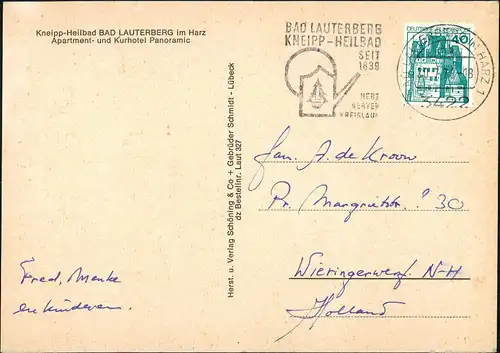 Kneipp-Heilbad BAD LAUTERBERG im Harz
Apartment- und Kurhotel Panoramic
BAD LAUTERBERG
KNEIPP-HEILBAD
SEIT
1839
HERZ
NERVEN
KREISLAUF
DEUTSCHE BUNDESPOST
40
IM HARZ 1
3422
Herst. u. Verlag Schöning & Co + Gebrüder Schmidt - Lübeck
dz Bestellnr. Laut 327
Fam. A. de Kroon
Pr. Margrietstr. 30
Wieringerwerf N-H
Holland
Fred, Menke
en kinderen.